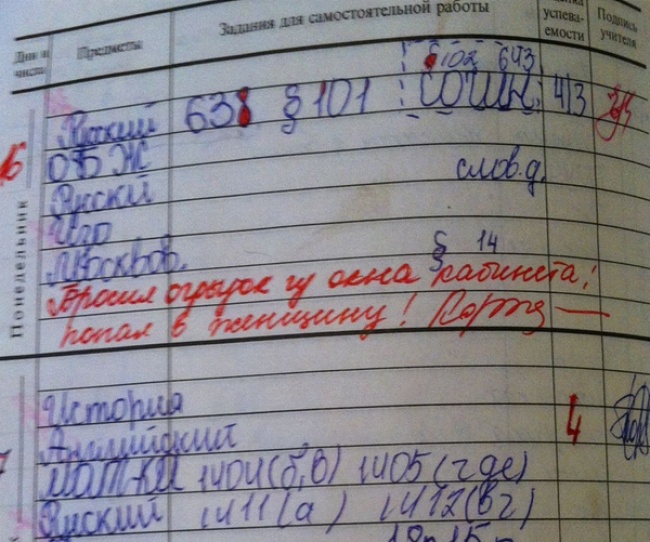 Дни и числа Предметы Задания для самостоятельной работы успева-емости Подпись учителя
§102 643
Русский 638 § 101 СОЧИН. 4/3
16
ОБЖ
Русски слов.д.
Изо
Москвов. § 14
Понедельник
Бросил огрызок из окна кабинета,
попал в женщину!
История
Английский 4
МАТ-КА 1404(б,в) 1405(где)
Русский 1411(а) 1412(вг)